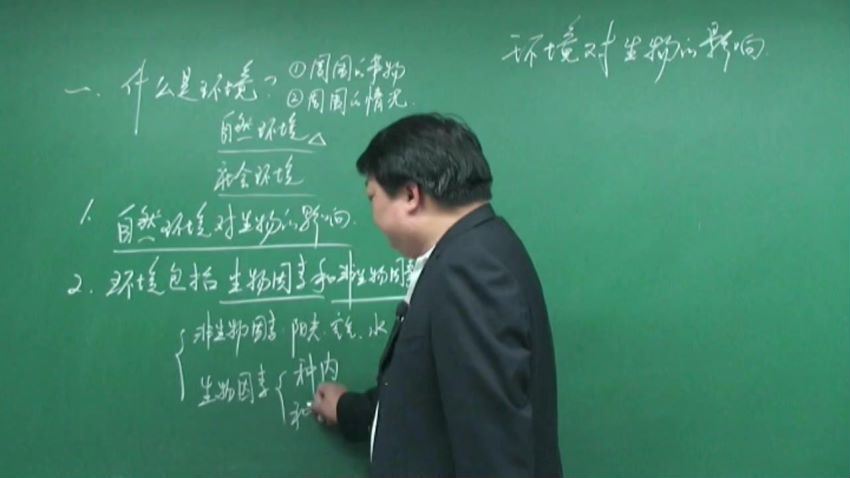 环境对生物的影响
一、什么是环境？①周围的事物
②周围的情况.
自然环境△
社会环境
1. 自然环境对生物的影响.
2. 环境包括生物因素和非生物因素
非生物因素：阳光、 水
生物因素 种内
种